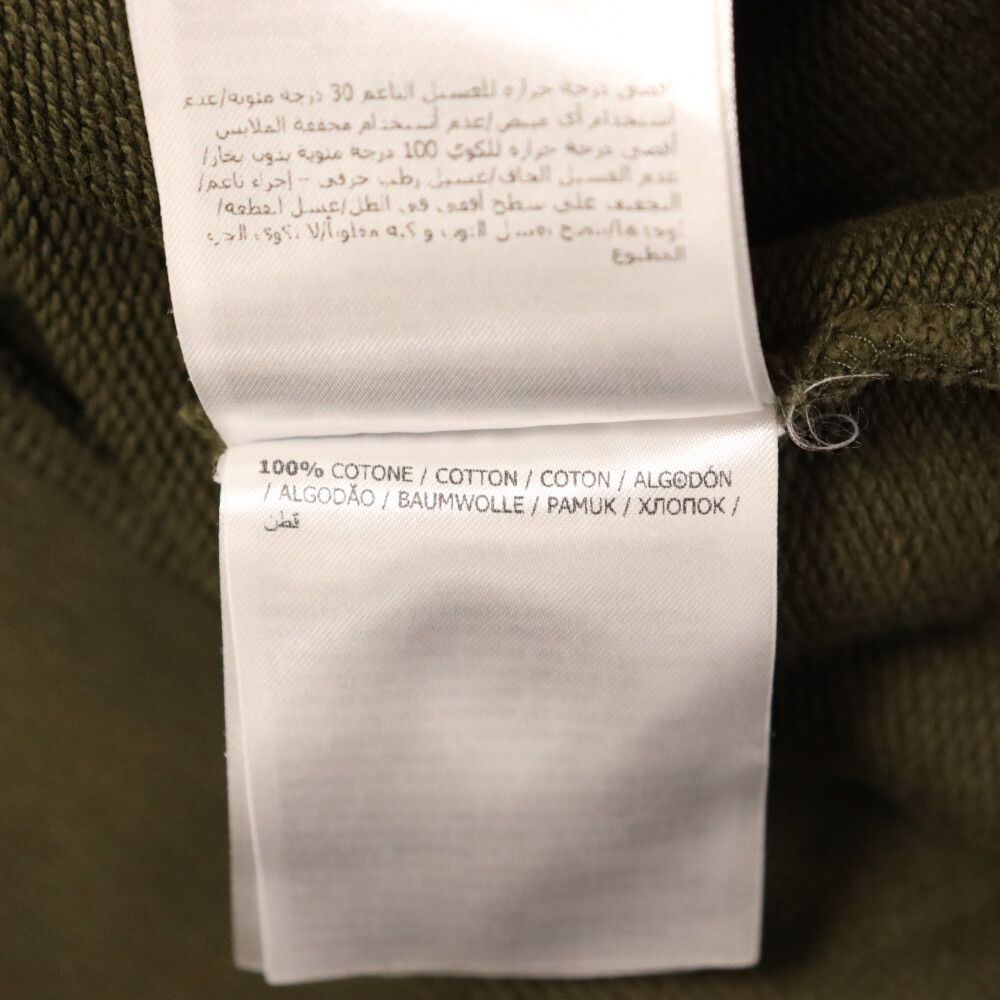 أقصى درجة حرارة للغسيل الناعم 30 درجة مئوية/عدم
إستخدام أي مبيض/عدم إستخدام مجففة الملابس
أقصى درجة حرارة للكوي 100 درجة مئوية بدون بخار/
عدم الغسيل الجاف/غسيل رطب حرفي - إجراء ناعم/
التجفيف على سطح أفقي في الظل/غسل
المطبوع
100% COTONE / COTTON / COTON / ALGODÓN
/ ALGODÃO / BAUMWOLLE / PAMUK / ХЛОПОК /
قطن